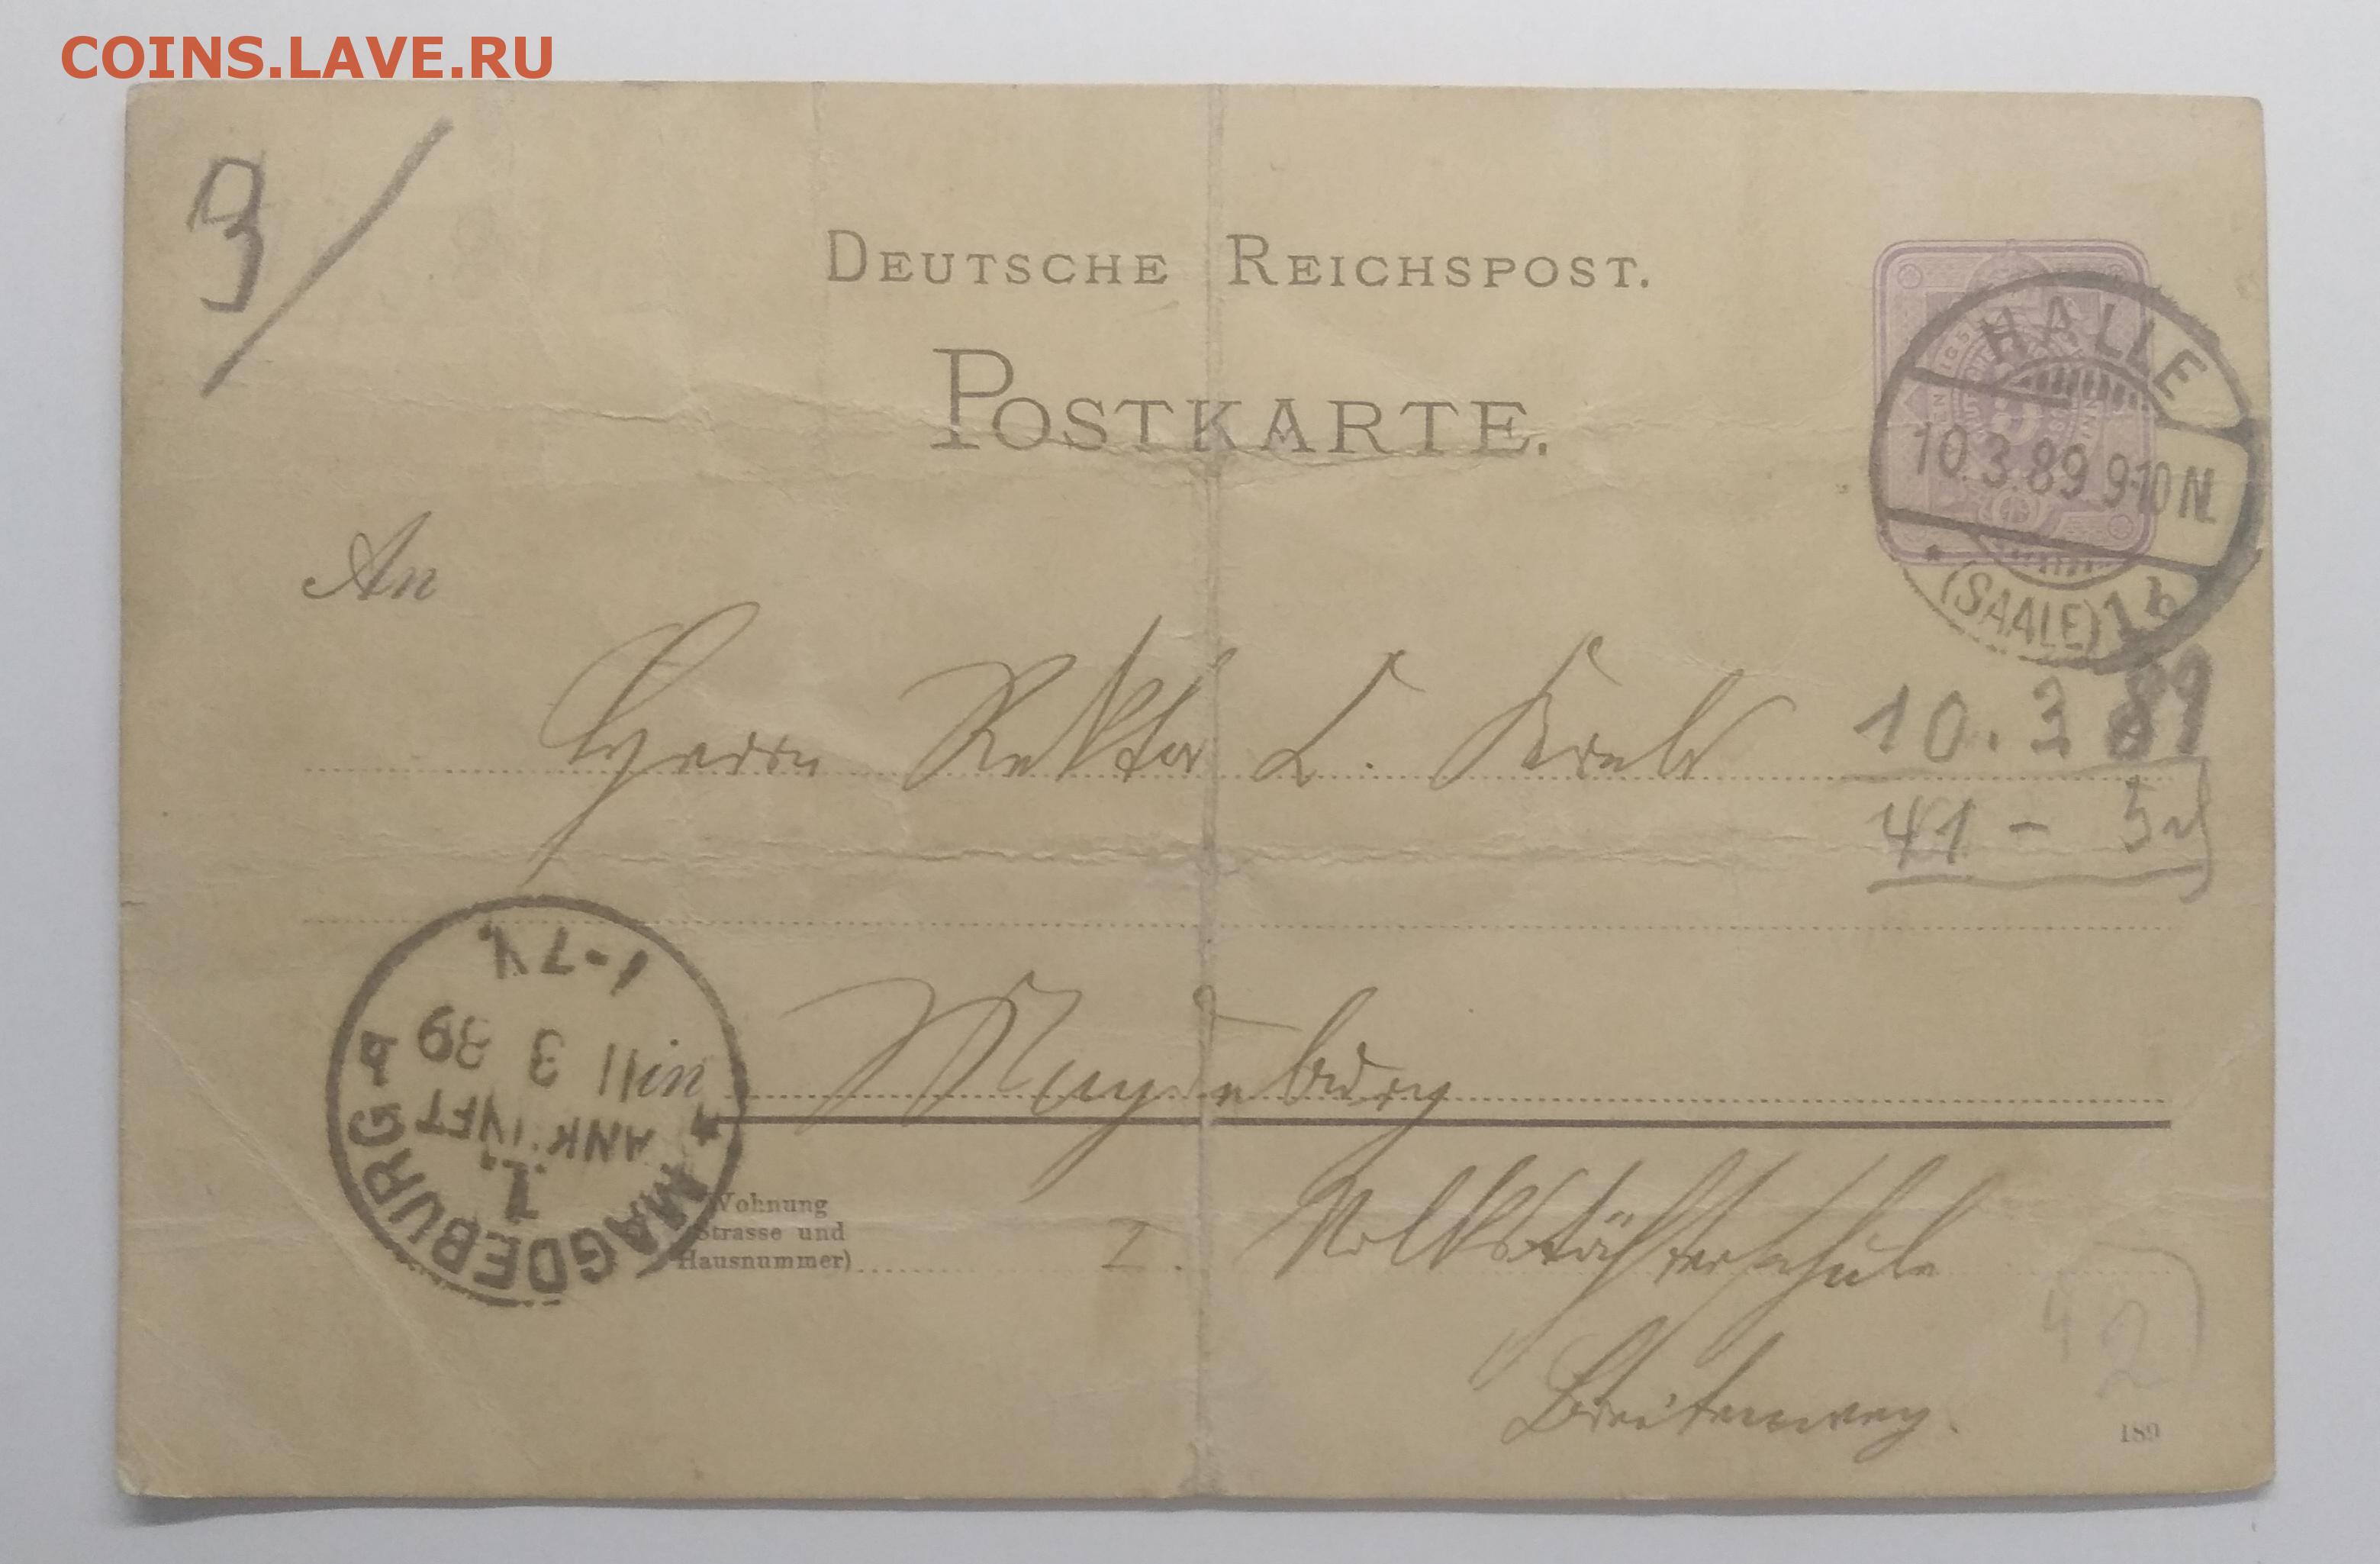 COINS.LAVE.RU
3
DEUTSCHE REICHSPOST.
POSTKARTE.
HALLE
10.3.89.9-10N.
(SAALE) 1 b
An
Herrn Rektor L.
10.3 89
41 -
1-7V.
11 3 89
ANK.
MAGDEBURG
in Magdeburg
Wohnung
Strasse und
Hausnummer)
I. Volkstöchterschule
Breiteweg.
42
189